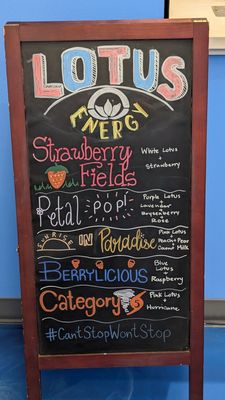 LOTUS
ENERGY
Strawberry
Fields
White Lotus
+
Strawberry
Petal POP!
Purple Lotus
+
Lavender
Boysenberry
Rose
SUNRISE IN Paradise
Pink Lotus
Peach + Pear
Coconut Milk
BERRYLICIOUS
Blue
Lotus
+
Raspberry
Category
Pink Lotus
+
Hurricane
#CantStopWontStop